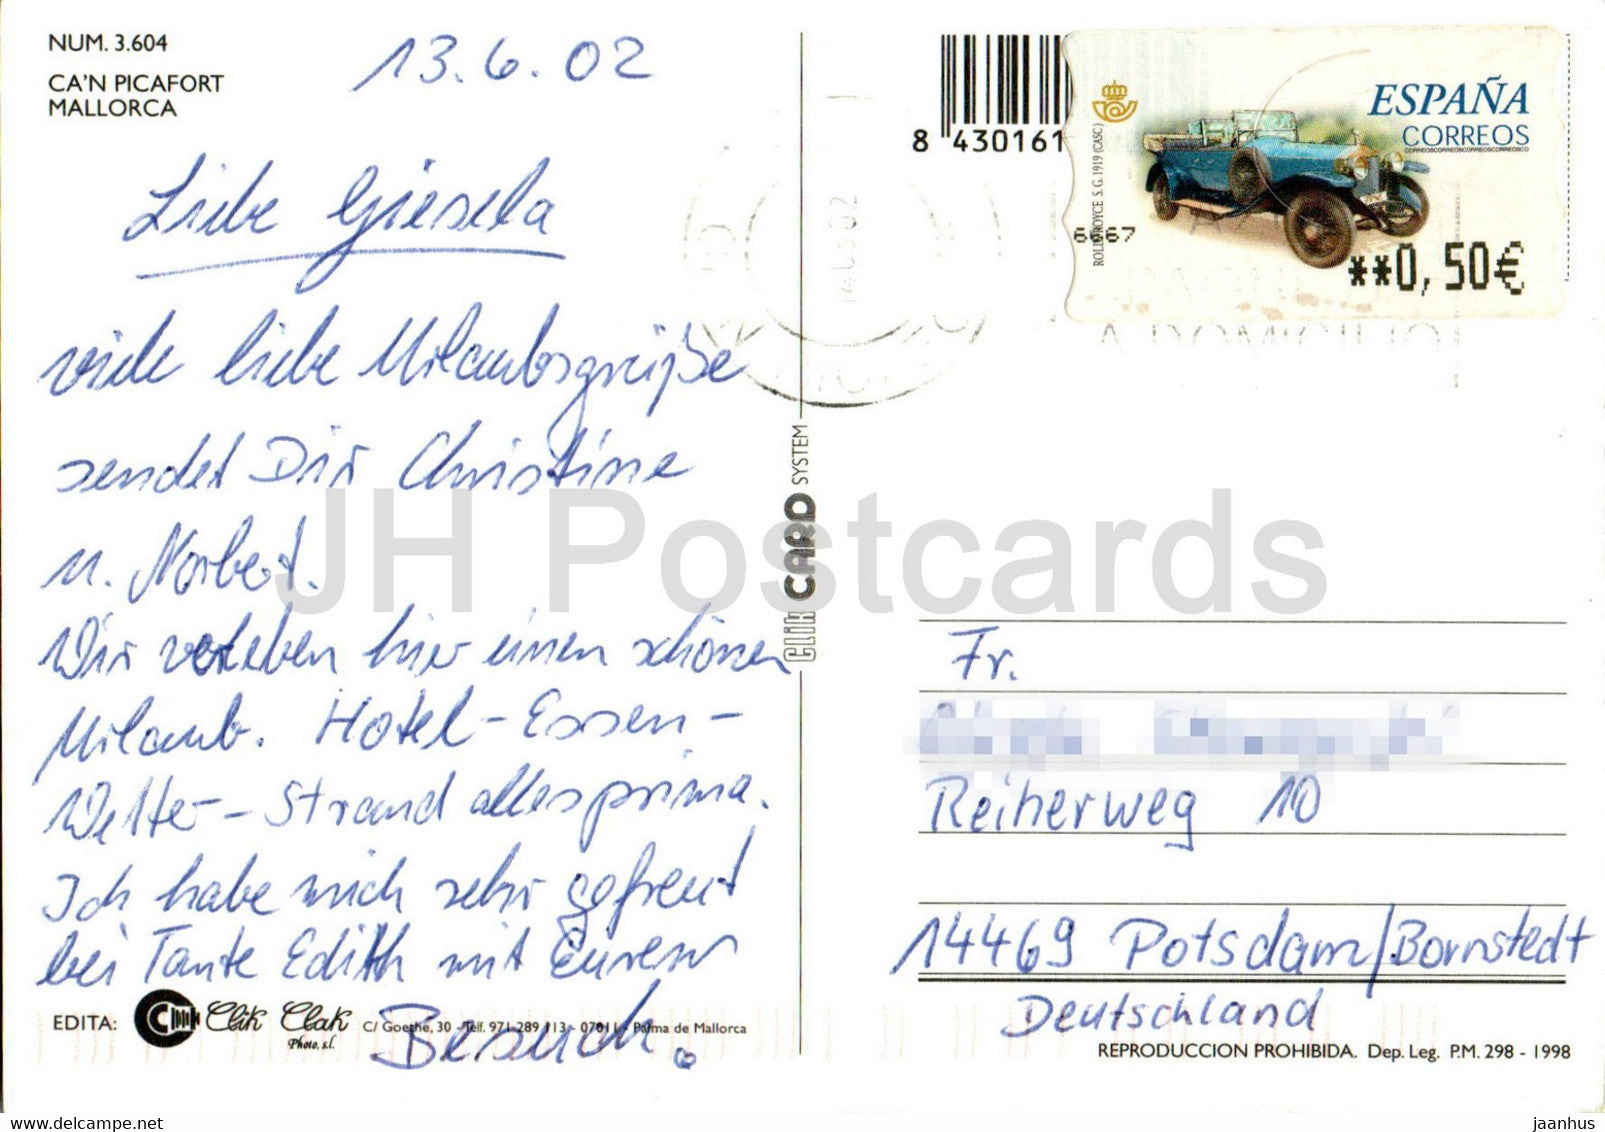 NUM. 3.604
CA'N PICAFORT
MALLORCA
13.6.02
Liebe Giesela
viele liebe Urlaubsgrüße
sendet Dir Christine
u. Norbert.
Wir verleben hier einen schönen
Urlaub. Hotel-Essen-
Wetter-Strand alles prima.
Ich habe mich sehr gefreut
bei Tante Edith mit Eurem
Besuch.
EDITA: Clik Clak Photo, s.l. C/ Goethe, 30 - Telf. 971 289 113 - 07011 - Palma de Mallorca
Clik CARD SYSTEM
JH Postcards
8 430161
ESPAÑA
CORREOS
ROLLS ROYCE S. G. 1919 (CASC)
6667
**0,50€
A DOMICILIO
Fr.
Reiherweg 10
14469 Potsdam/Bornstedt
Deutschland
REPRODUCCION PROHIBIDA. Dep. Leg. P.M. 298 - 1998
www.delcampe.net
jaanhus